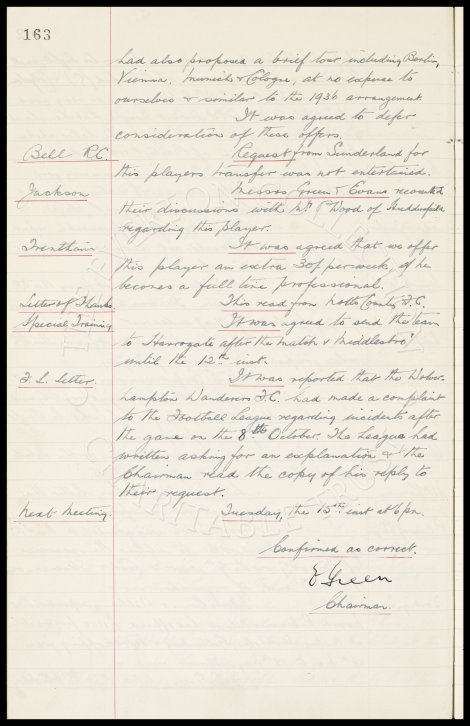 163
had also proposed a brief tour including Berlin,
Vienna, Munich & Cologne, at no expense to
ourselves & similar to the 1936 arrangement.
It was agreed to defer
consideration of these offers.
Bell R.C. Request from Sunderland for
this players transfer was not entertained.
Jackson Messrs Green & Evans recounted
their discussions with Mr Wood of Huddersfield
regarding this player.
Trentham It was agreed that we offer
this player an extra 30/- per week, if he
becomes a full time professional.
Letter of Thanks This read from Notts County F.C.
Special Training It was agreed to send the team
to Harrogate after the match v Middlesbro'
until the 12th inst.
F. L. Letter. It was reported that the Wolver-
hampton Wanderers F.C. had made a complaint
to the Football League regarding incidents after
the game on the 8th October. The League had
written asking for an explanation & the
Chairman read the copy of his reply to
their request.
Next Meeting Tuesday, the 15th inst at 6 pm.
Confirmed as correct.
E Green
Chairman.